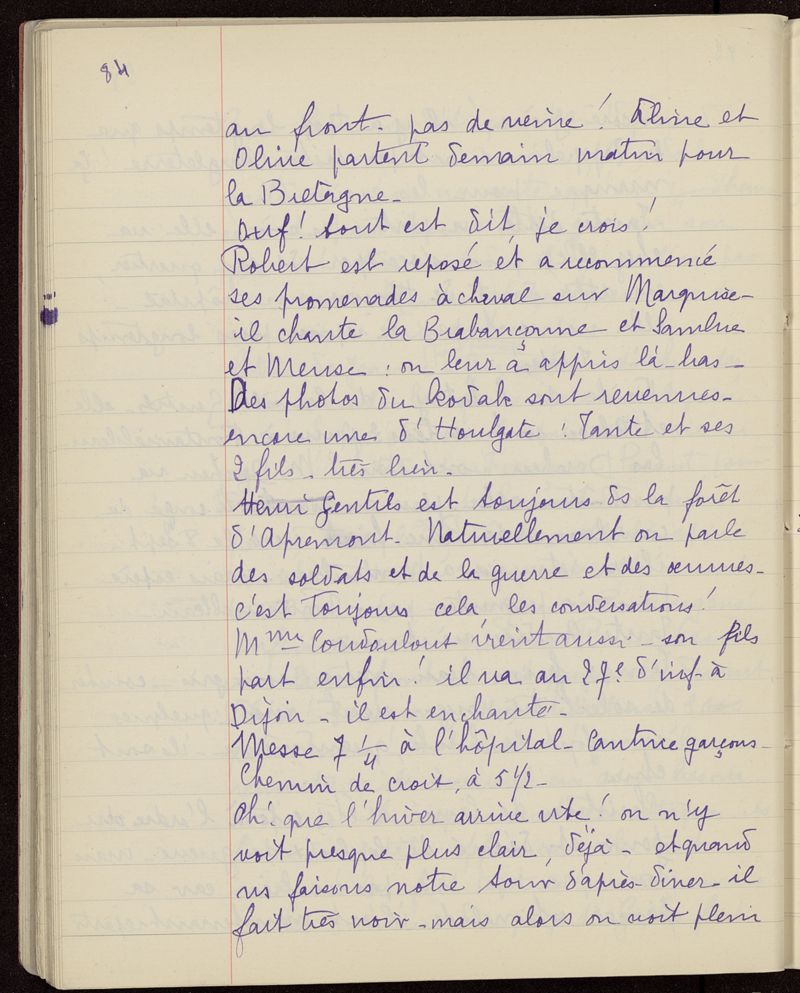 84
au front. pas de veine! Aline et
Olive partent demain matin pour
la Bretagne_
Ouf! tout est dit, je crois!
Robert est reposé et a recommencé
ses promenades à cheval sur Marquise_
il chante la Brabançonne et Sambre
et Meuse : on leur a appris là-bas_
Des photos du kodak sont revenues_
encore une d'Houlgate : Tante et ses
2 fils_ très bien_
Henri Gentils est toujours ds la forêt
d'Apremont_ Naturellement on parle
des soldats et de la guerre et des oeuvres_
c'est toujours cela les conversations!
Mme vient aussi_ son fils
part enfin! il va au 27e d'inf. à
Dijon_ il est enchanté_
Messe 7 1/4 à l'hôpital_ Cantine garçons_
Chemin de croix, à 5 1/2_
Oh! que l'hiver arrive vite! on n'y
voit presque plus clair, déjà_ et quand
ns faisons notre tour d'après-dîner_ il
fait très noir_ mais alors on voit plein